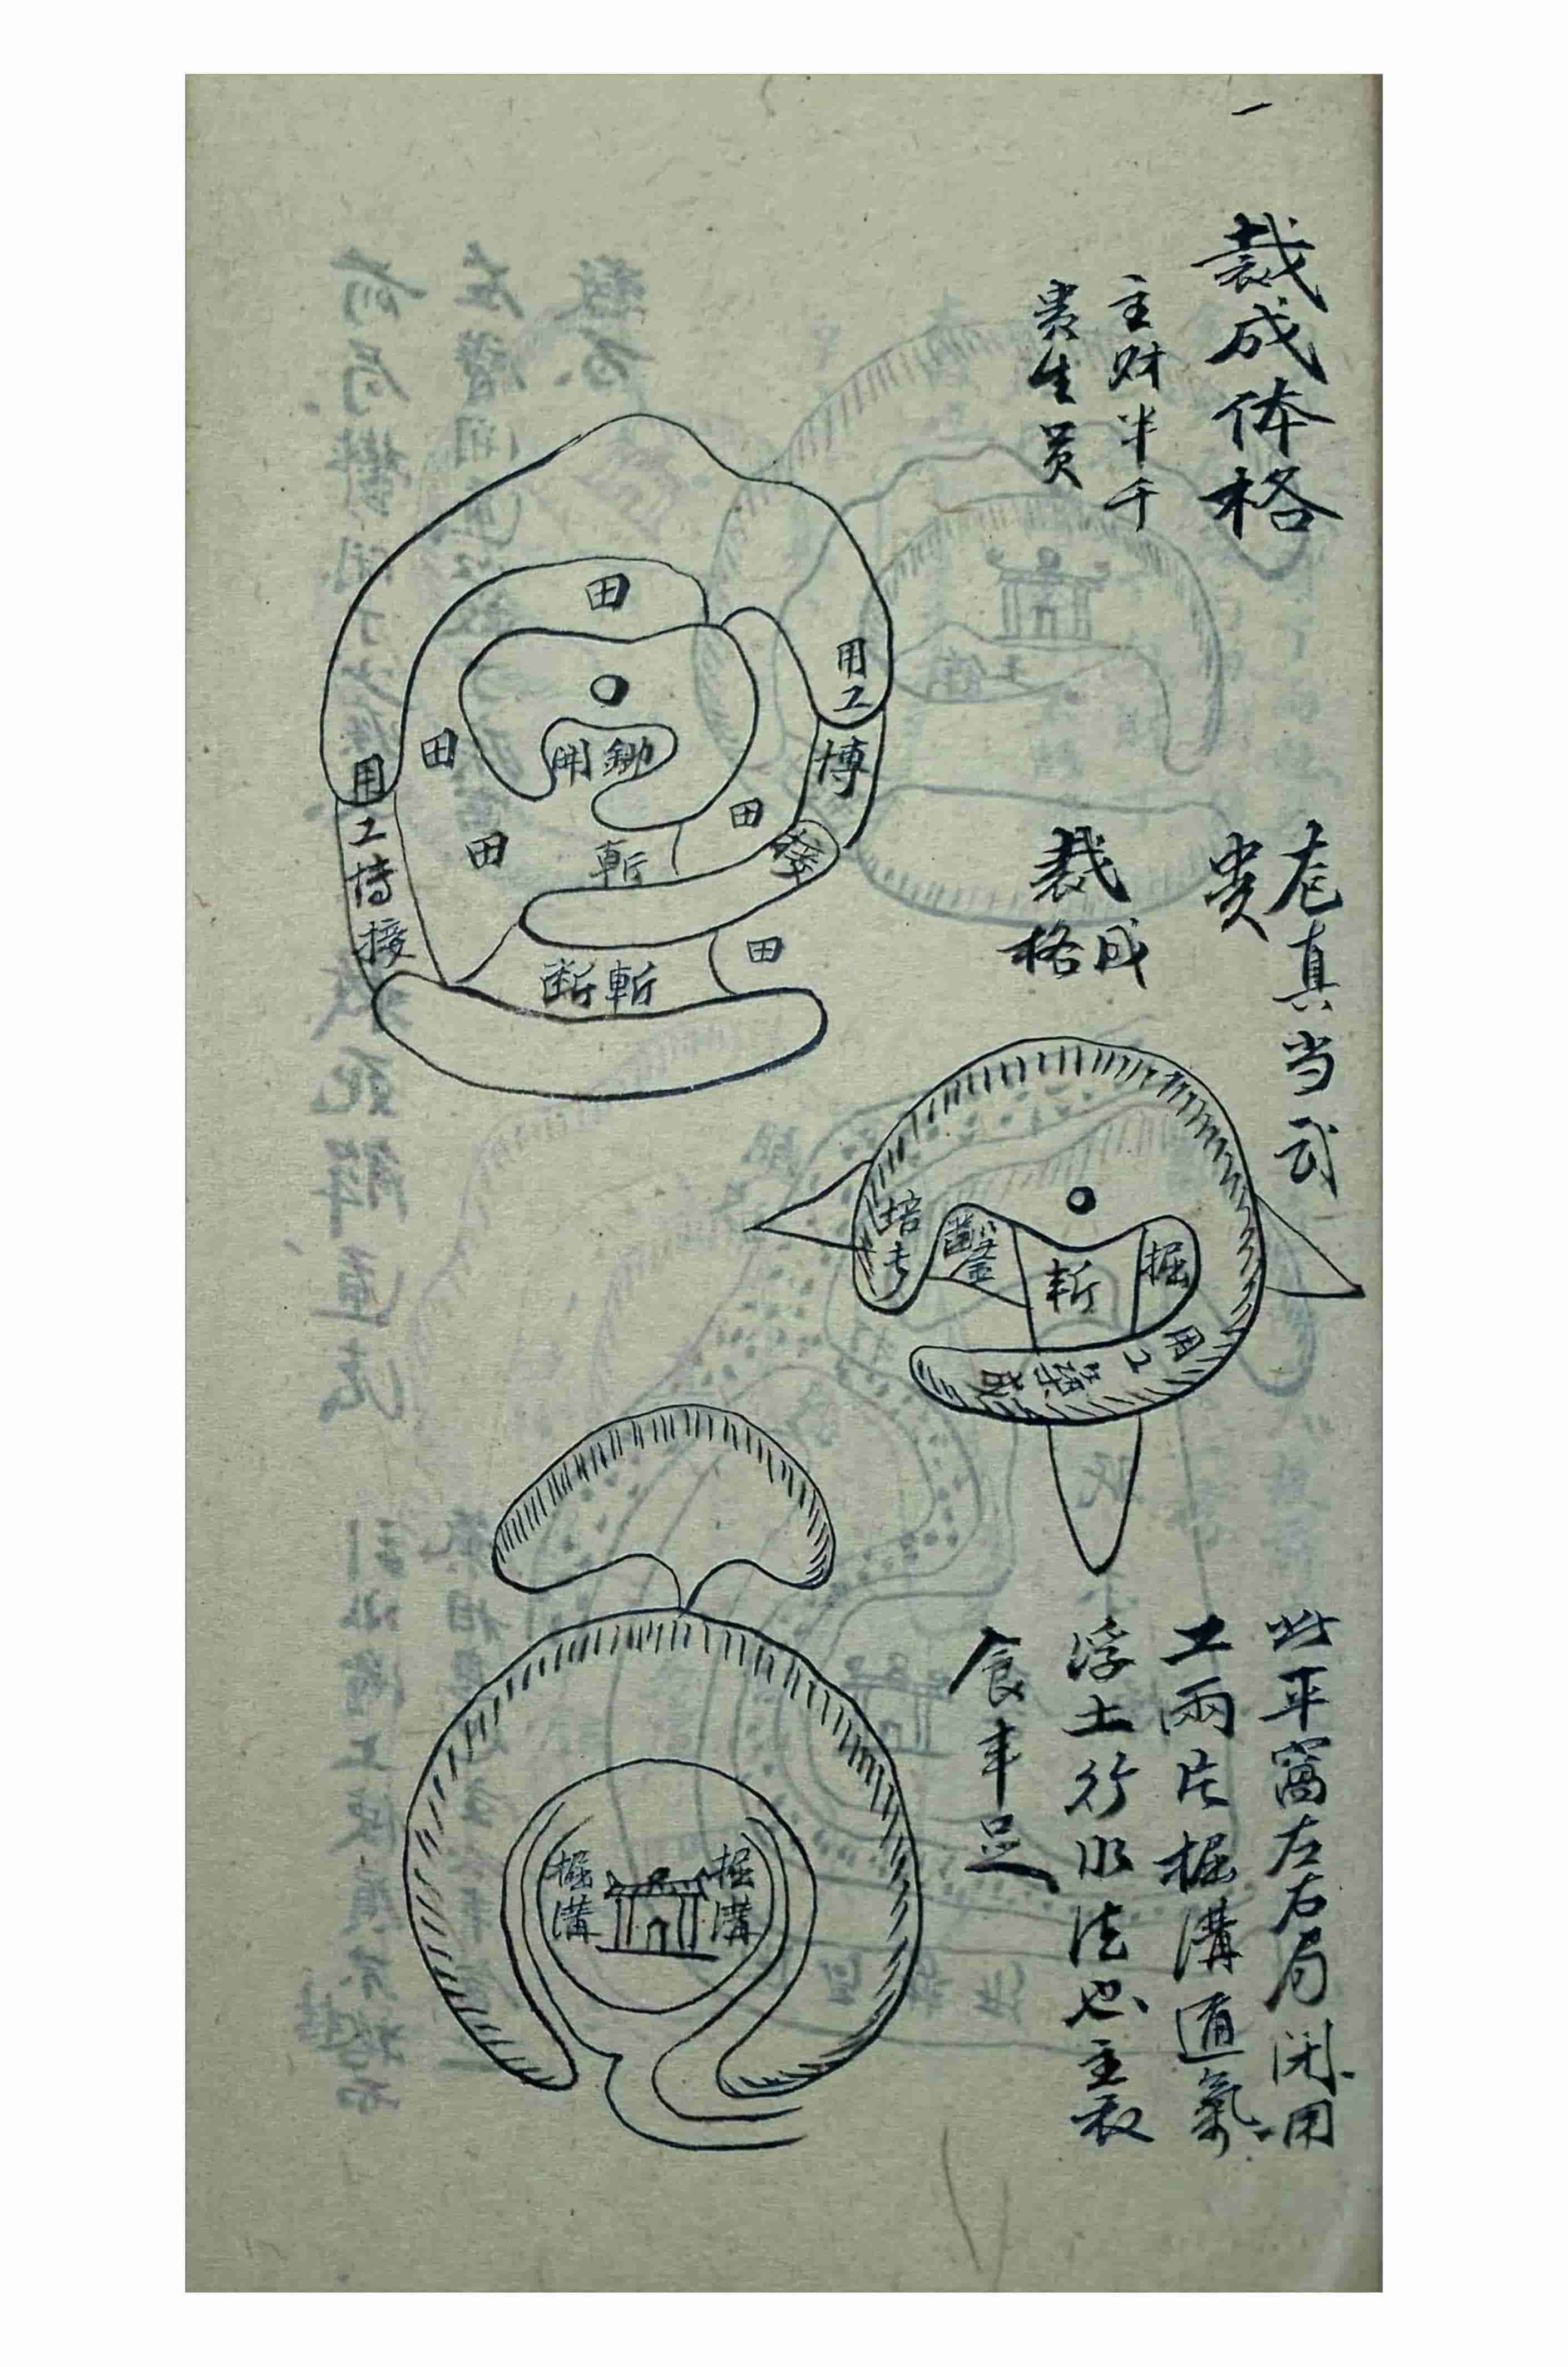 一
裁成体格
主财半千
贵生员
田
用工
田
開鋤
用工博接
博
田
田
接
斬
田
斬断
穴真当武
贵
裁成
格
培
鑿
斬
掘
用工築成
此平窩左右局闭用
工兩片掘溝通氣
浮土行水法也主衣
食丰足
掘溝
掘溝